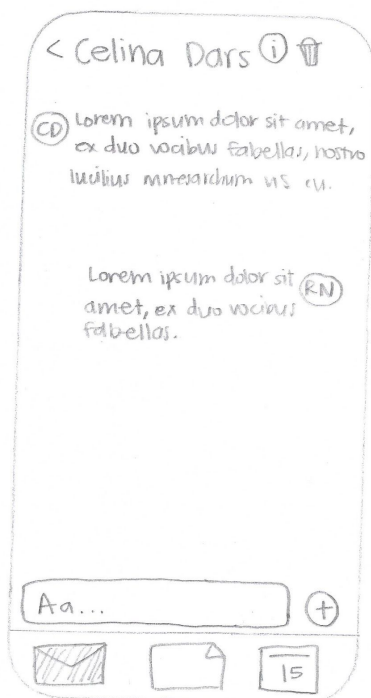 < Celina Dars i
CD Lorem ipsum dolor sit amet,
ex duo vocibus fabellas, nostro
lucilius mnesarchum vis cu.
Lorem ipsum dolor sit RN
amet, ex duo vocibus
fabellas.
Aa...
+
15